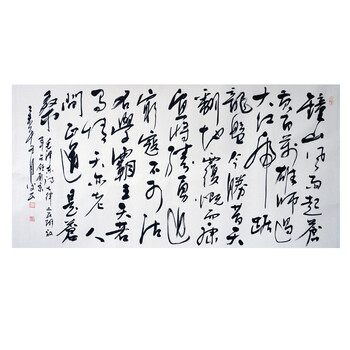 鐘山风雨起蒼
黄百万雄师過
大江虎踞
龍盤今勝昔天
翻地覆慨而慷
宜将剩勇追
窮寇不可沽
名學霸王天若
有情天亦老人
間正道是蒼
桑
毛泽东诗七律人民解放
军占领南京